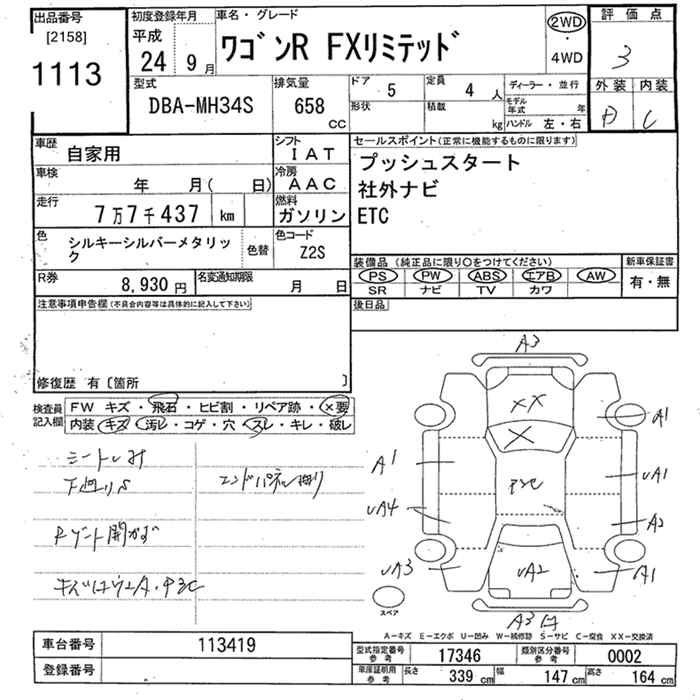 出品番号
[2158]
1113
初度登録年月
平成
24 9月
車名・グレード
ワゴンR FXリミテッド
2WD
・
4WD
評価点
3
外装 内装
C
型式
DBA-MH34S
排気量
658
CC
ドア 5
定員 4 人
形状
積載 kg
ディーラー・並行
モデル年式 年
ハンドル 左・右
車歴
自家用
シフト
IAT
車検
年 月( 日)
冷房
AAC
走行
7万7千437 km
燃料
ガソリン
色
シルキーシルバーメタリック
色替
色コード
Z2S
R券
8,930 円
名変通知期限
月 日
セールスポイント(正常に機能するものに限ります)
プッシュスタート
社外ナビ
ETC
装備品(純正品に限り〇をつけてください)
PS PW ABS エアB AW
SR ナビ TV カワ
新車保証書
有・無
後日品
注意事項申告欄(不具合内容等は具体的に記入して下さい)
修復歴 有〔箇所 〕
検査員
記入欄
FW キズ・飛石・ヒビ割・リペア跡・×要
内装・キズ・汚レ・コゲ・穴・スレ・キレ・破レ
A3
XX
X
A1
A1
UA1
UA4
A2
UA3
UA2
A1
A3
スペア
A-キズ E-エクボ U-凹み W-補修跡 S-サビ C-腐食 XX-交換済
車台番号
113419
登録番号
型式指定番号
参考
17346
類別区分番号
参考
0002
車庫証明用
参考
長さ 339 cm
幅 147 cm
高さ 164 cm